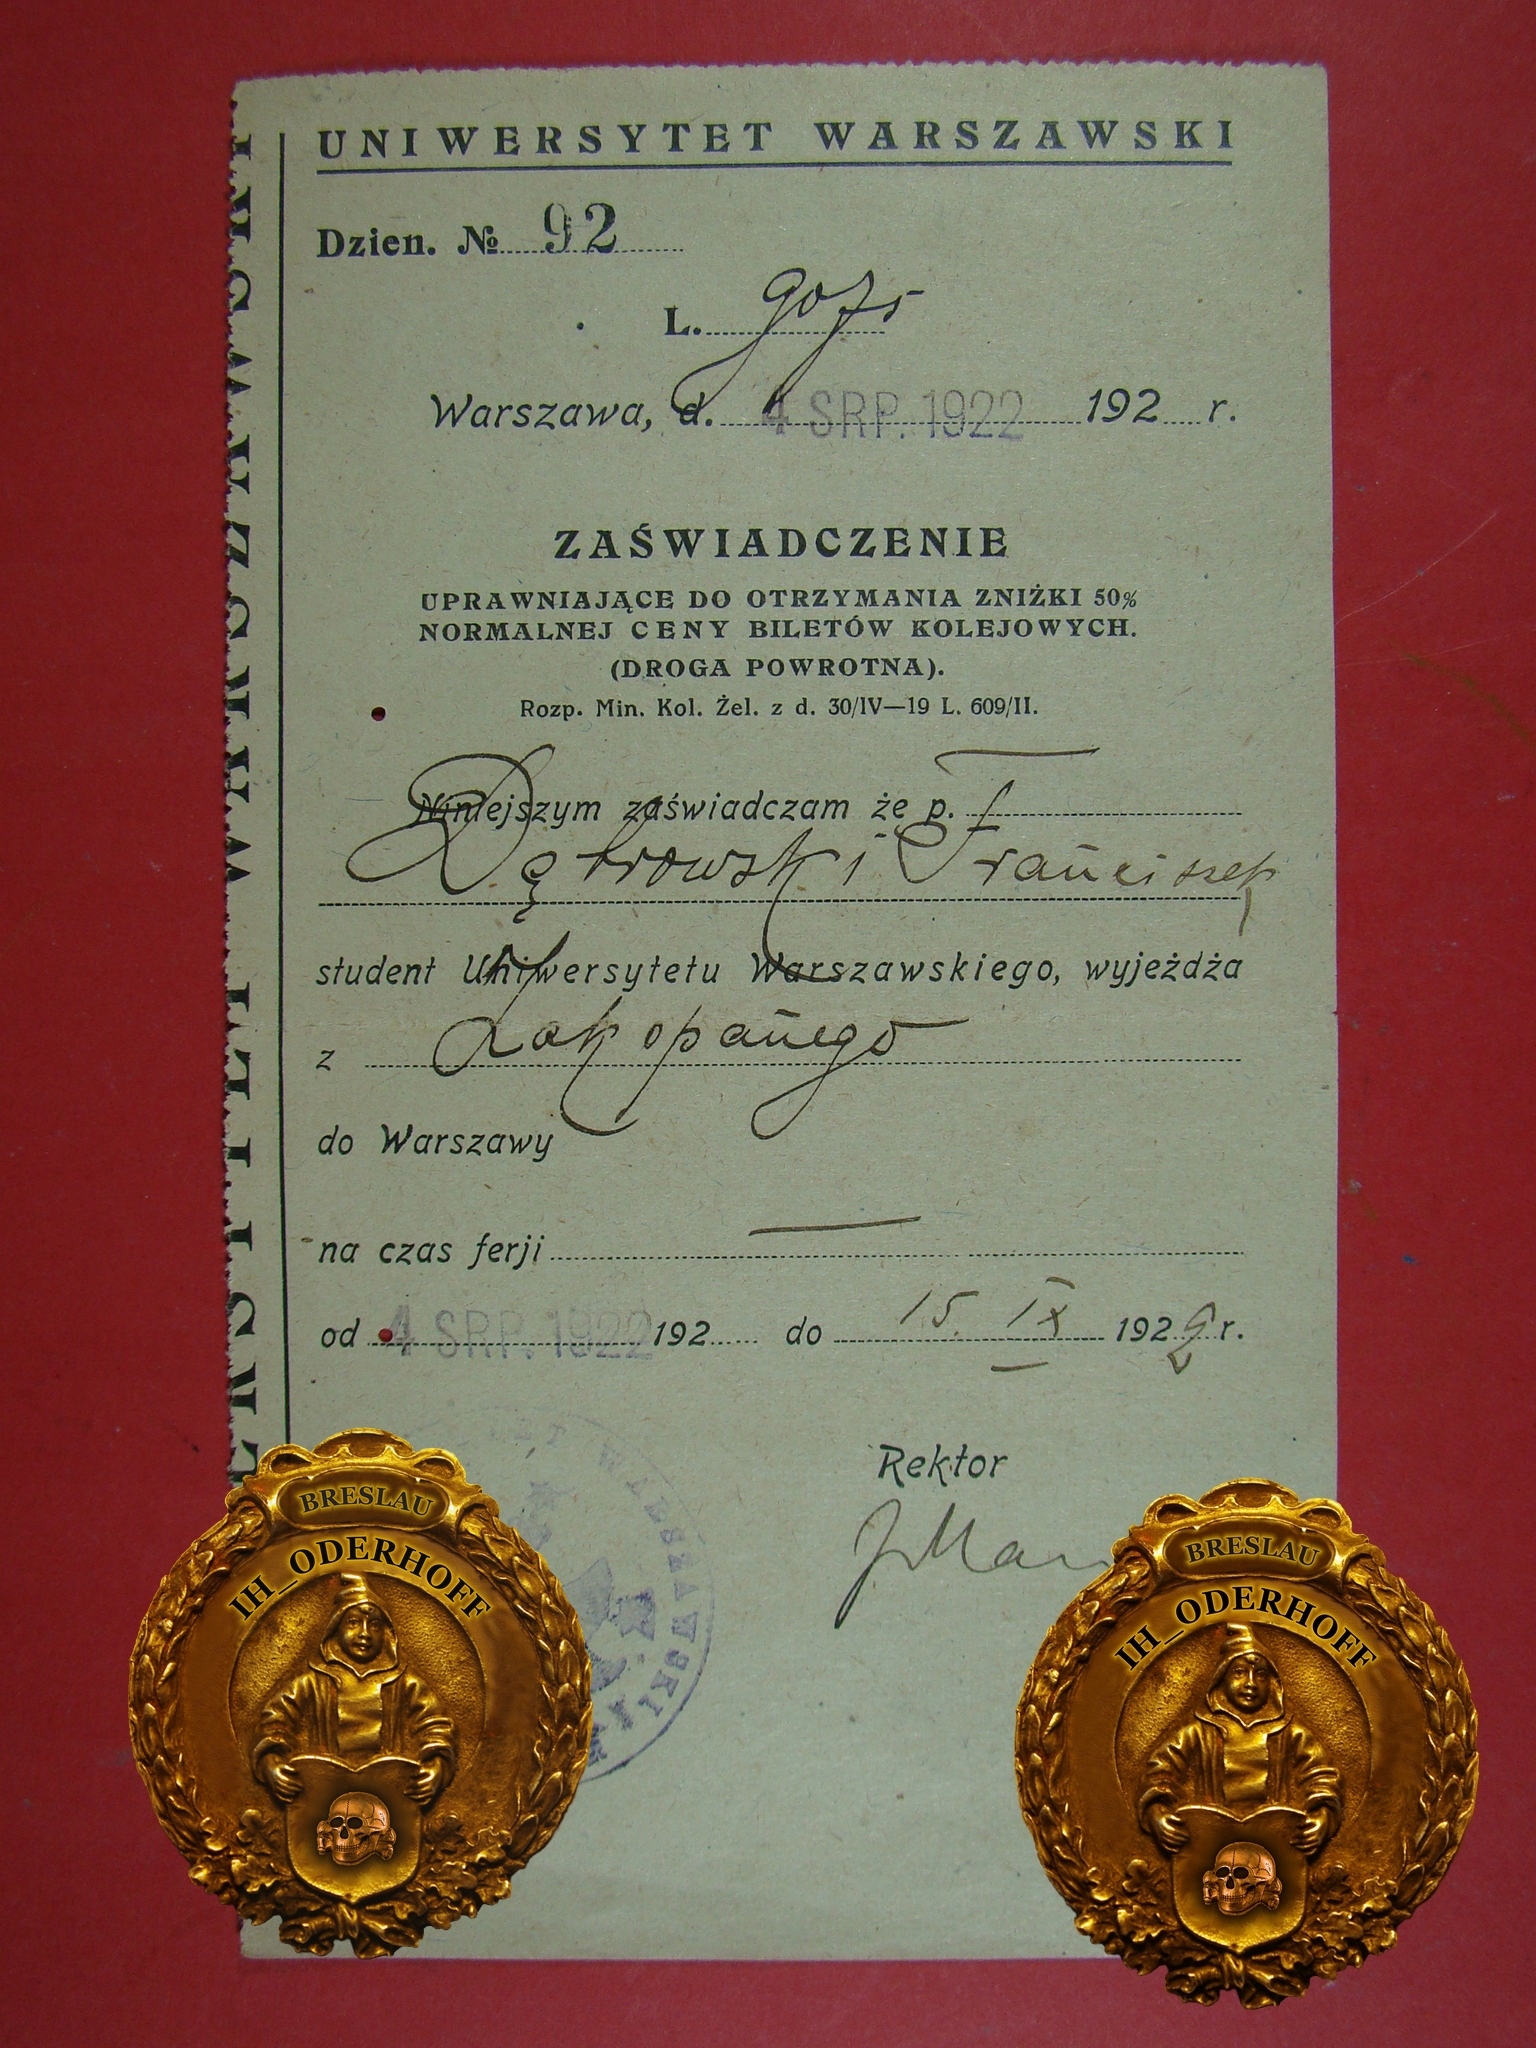 UNIWERSYTET WARSZAWSKI
Dzien. № 92
L. 9075
Warszawa, d. 4 SRP. 1922 192 r.
ZAŚWIADCZENIE
UPRAWNIAJĄCE DO OTRZYMANIA ZNIŻKI 50%
NORMALNEJ CENY BILETÓW KOLEJOWYCH.
(DROGA POWROTNA).
Rozp. Min. Kol. Żel. z d. 30/IV—19 L. 609/II.
Niniejszym zaświadczam że p.
Dąbrowski Franciszek
student Uniwersytetu Warszawskiego, wyjeżdża
z Zakopanego
do Warszawy
na czas ferji —
od 4 SRP. 1922 192 do 15. IX 1922 r.
Rektor
WARSZAWSKI
BRESLAU
IH_ODERHOFF
BRESLAU
IH_ODERHOFF